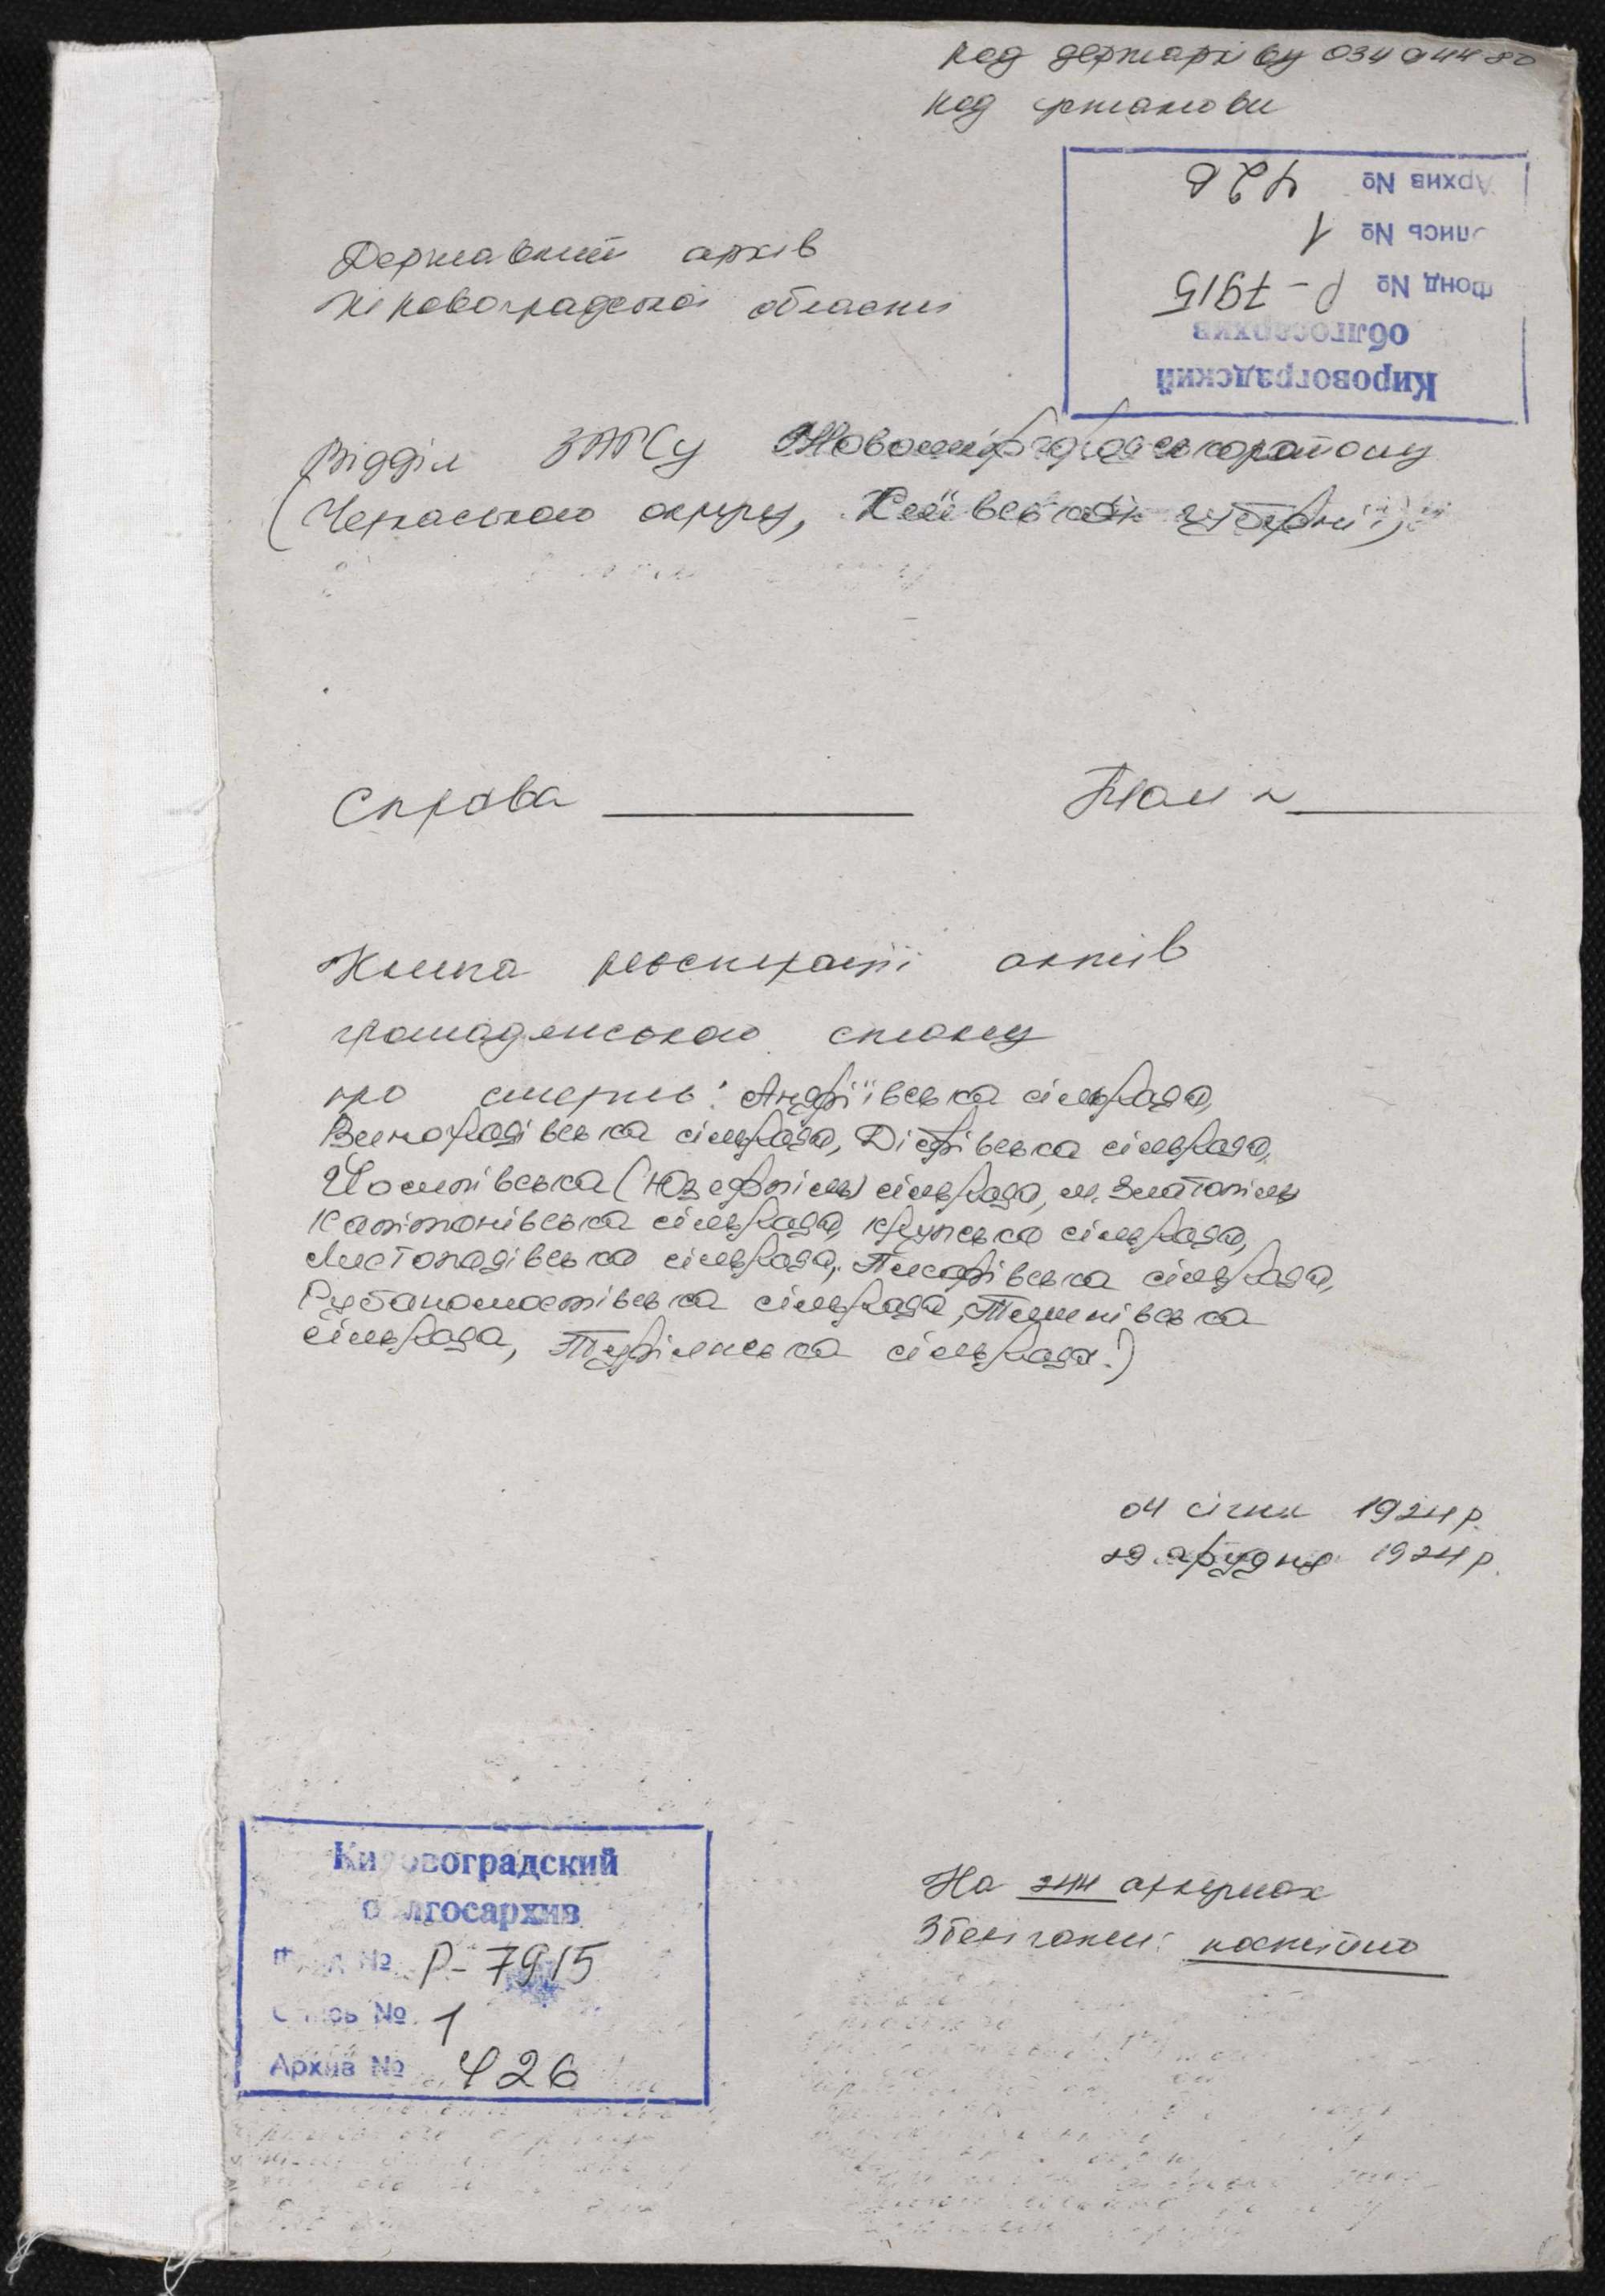 код держархіву 03494480
код установи
Кировоградский
облгосархив
Фонд № Р-7915
Опись № 1
Архив № 426
Державний архів
Кіровоградської області
Відділ ЗАГСу Новомиргородського району
(Черкаського округу, Київської губернії)
Справа
Том №
Книга реєстрації актів
громадянського стану
про смерть: Андріївська сільрада,
Виноградівська сільрада, Дібрівська сільрада,
Йосипівська (Юзефпіль) сільрада, м. Златопіль
Капітонівська сільрада, Крупська сільрада,
Листопадівська сільрада, Писарівська сільрада,
Рубаномостівська сільрада, Тишківська
сільрада, Турілянська сільрада.)
04 січня 1924 р.
29 грудня 1924 р.
Кировоградский
облгосархив
Фонд № Р-7915
Опись № 1
Архив № 426
На 244 аркушах
Зберігати: постійно